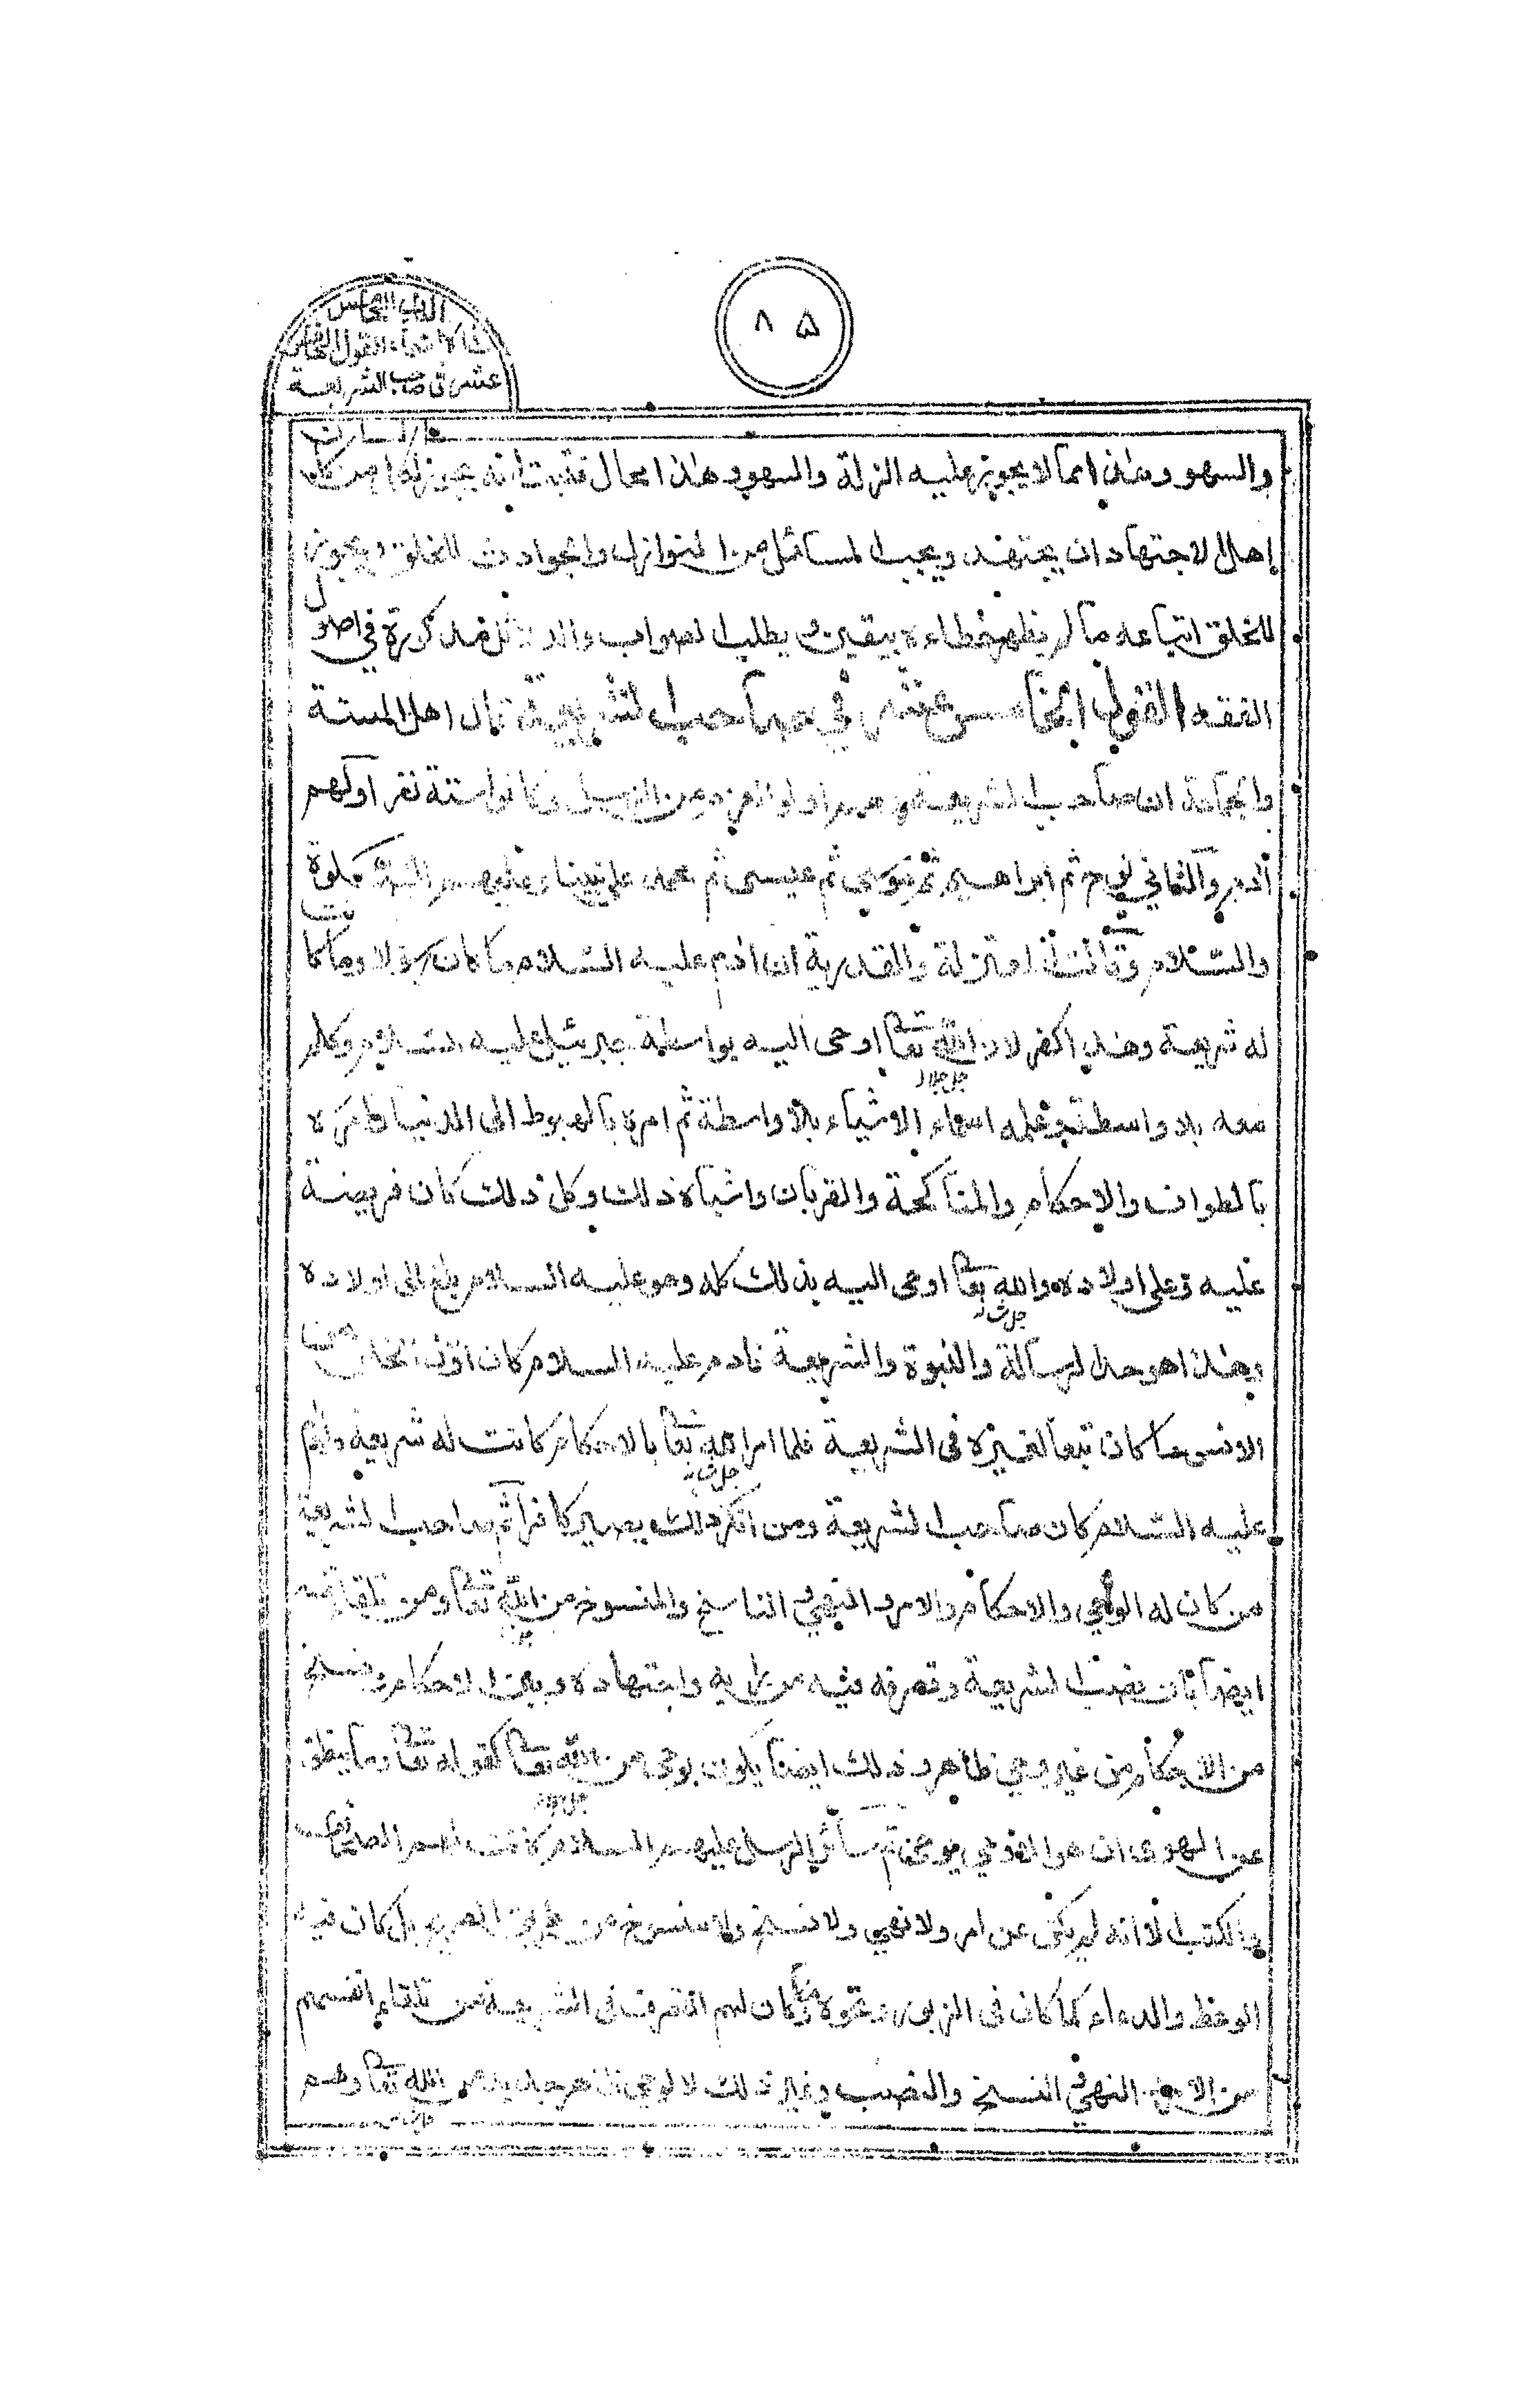 ٨٥
الباب الخامس
فى الانبياء القول الخامس
عشر فى صاحب الشريعة
والسهو وهذا مما لا يجوز عليه الزلة والسهو هذا محال فثبت انه يجوز لمن كان
اهل الاجتهاد ان يجتهد ويجيب المسائل من النوازل والحوادث للخلق ويجوز
للخلق اتباعه ما لم يظهر خطاءه بيقين ويطلب الصواب والدلائل مذكورة فى اصول
الفقه القول الخامس عشر في صاحب الشريعة قال اهل السنة
والجماعة ان صاحب الشريعة هم اولوا العزم من الرسل وكانوا ستة نفر اولهم
آدم والثاني نوح ثم ابراهيم ثم موسى ثم عيسى ثم محمد على نبينا وعليهم الصلوة
والسلام وقالت المعتزلة والقدرية ان ادم عليه السلام ما كان رسولا وما كانت
له شريعة وهذا كفر لان الله تعا اوحى اليه بواسطة جبرئيل عليه السلام وكلم
جل جلاله
معه بلا واسطة وعلمه اسماء الاشياء بلا واسطة ثم امره بالهبوط الى الدنيا وامره
بالطواف والاحكام والمناكحة والقربان واشباه ذلك وكل ذلك كان فريضة
عليه وعلى اولاده والله تعا اوحى اليه بذلك كله وهو عليه السلام بلغ الى اولاده
جل شانه
وهذا هو حد الرسالة والنبوة والشريعة فادم عليه السلام كان اول الخلق من
الانس ما كان تبعا لغيره فى الشريعة فلما امر الله تعا بالاحكام كانت له شريعة وادم
جل شانه
عليه السلام كان صاحب الشريعة ومن انكر ذلك يصير كافرا ثم صاحب الشريعة
من كان له الوحي والاحكام والامر والنهي والناسخ والمنسوخ من الله تعا ومن تلقاء نفسه
ايضا بان يضع الشريعة وتصرفه فيه من رايه واجتهاده وبين الاحكام وينسخ
من الاحكام من غير وحي ظاهر وذلك ايضا يكون بوحى من الله تعا كقوله تعا وما ينطق
جل جلاله
عن الهوى ان هو الا وحي يوحى ثم سائر الرسل عليهم السلام كانت لهم الصحائف
والكتب الا انه لم يكن عن امر ولا نهي ولا نسخ ولا منسوخ من طريق بل كان فيه
الوعظ والدعاء كما كان فى الزبور ونحوه وما كان لهم التصرف فى الشريعة من تلقاء انفسهم
من الامر والنهي والنسخ والنصب وغير ذلك لا لوحي الله تعا وهم